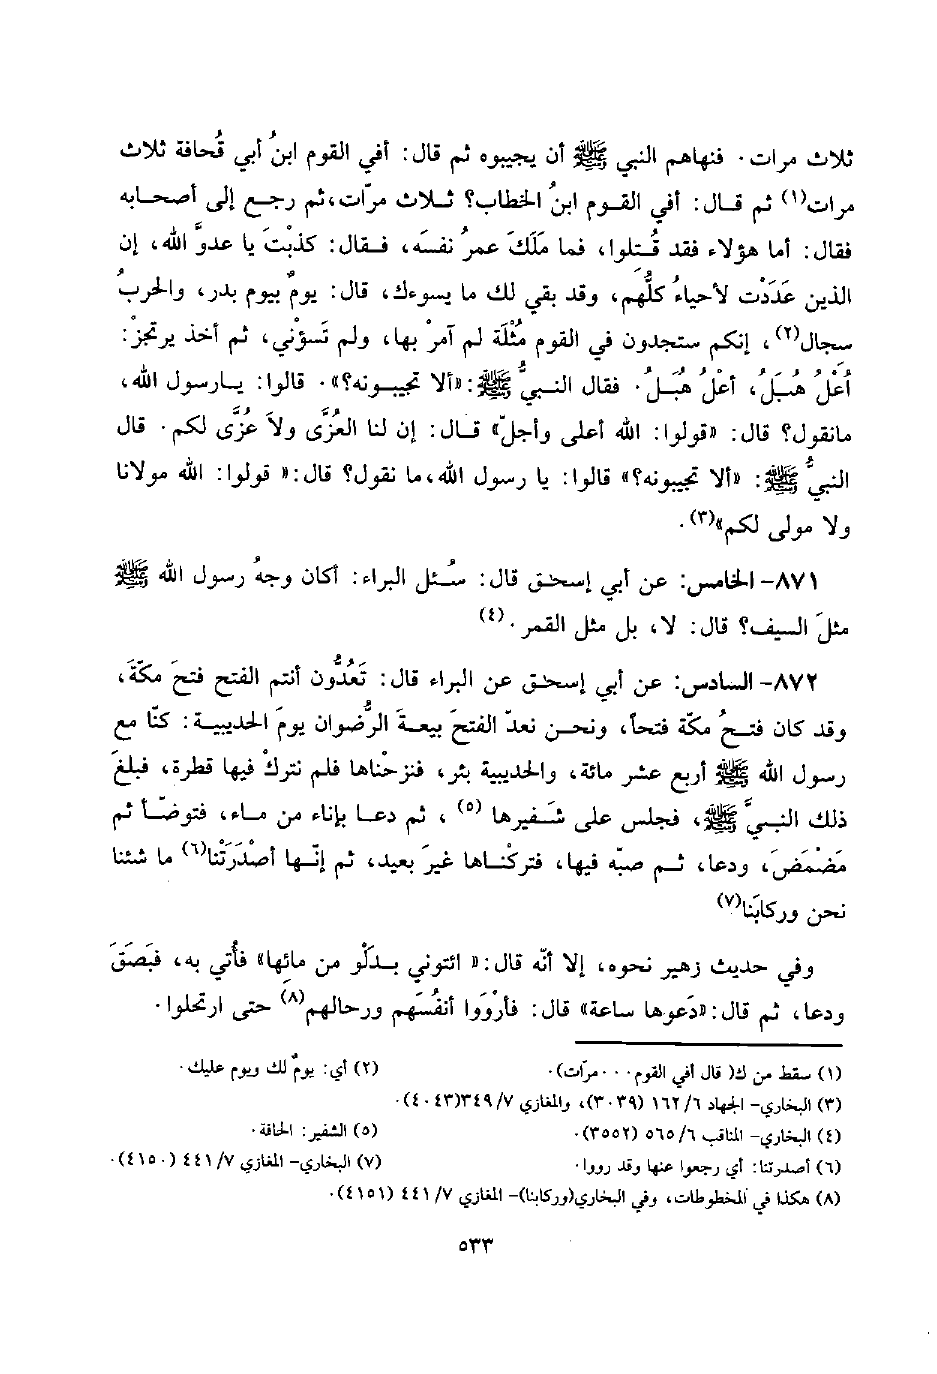 ثلاث مرات. فنهاهم النبي ﷺ أن يجيبوه ثم قال: أفي القوم ابنُ أبي قُحافة ثلاث
مرات(١) ثم قـال: أفي القـوم ابنُ الخطاب؟ ثـلاث مرّات،ثم رجـع إلى أصحـابه
فقال: أما هؤلاء فقد قُـتلوا، فما مَلَكَ عمرُ نفسَه، فـقال: كذبْتَ يا عدوَّ الله، إن
الذين عَدَدْت لأحياءُ كلُّهم، وقد بقي لك ما يسوءك، قال: يومٌ بيوم بدر، والحربُ
سجال(٢)، إنكم ستجدون في القوم مُثْلَة لم آمرْ بها، ولم تَسؤْني، ثم أخذ يرتجزُ:
اُعْلُ هُبَلُ، أعْلُ هُبَلُ. فقال النـبيُّ ﷺ:«ألا تجيبونه؟». قالوا: يـارسول الله،
مانقول؟ قال: «قولوا: الله أعلى وأجلّ» قـال: إن لنا العُزَّى ولاَ عُزَّى لكم. قال
النبيُّ ﷺ: «ألا تجيبونه؟» قالوا: يا رسول الله،ما نقول؟ قال:« قولوا: الله مولانا
ولا مولى لكم»(٣).
٨٧١- الخامس: عن أبي إسحـق قال: سُـئل البراء: أكان وجهُ رسول الله ﷺ
مثلَ السيف؟ قال: لا، بل مثل القمر .(٤)
٨٧٢- السادس: عن أبي إسحـق عن البراء قال: تَعُدُّون أنتم الفتح فتحَ مكّةَ،
وقد كان فتـحُ مكّة فتحاً، ونحـن نعدّ الفتحَ بيعـةَ الرُّضوان يومَ الحديبيـة: كنّا مع
رسول الله ﷺ أربع عشر مائة، والحديبية بئر، فنزحْناها فلم نتركْ فيها قطرة، فبلغَ
ذلك النبـيَّ ﷺ، فجلس على شَـفيرها (٥) ، ثم دعـا بإناء من مـاء، فتوضّـأ ثم
مَضْمَضَ، ودعا، ثـم صبّه فيها، فتركْناها غيرَ بعيد، ثم إنّـها أصْدَرَتْنا(٦) ما شئنا
نحن وركابَنا(٧)
وفي حديث زهير نحوه، إلا أنّه قال:« ائتوني بـدَلْو من مائِها» فأُتي به، فبَصَقَ
ودعا، ثم قال:«دَعوها ساعة» قال: فأرْوَوا أنفُسَهم ورحالهم(٨) حتى ارتحلوا.
(١) سقط من ك( قال أفي القوم... مرّات). (٢) أي: يومٌ لك ويوم عليك.
(٣) البخاري- الجهاد ١٦٢/٦ (٣٠٣٩)، والمغازي ٣٤٩/٧(٤٠٤٣).
(٤) البخاري- المناقب ٥٦٥/٦ (٣٥٥٢). (٥) الشفير: الحافة.
(٦) أصدرتنا: أي رجعوا عنها وقد رووا. (٧) البخاري- المغازي ٤٤١/٧ (٤١٥٠).
(٨) هكذا في المخطوطات، وفي البخاري(وركابنا)- المغازي ٤٤١/٧ (٤١٥١).
٥٣٣